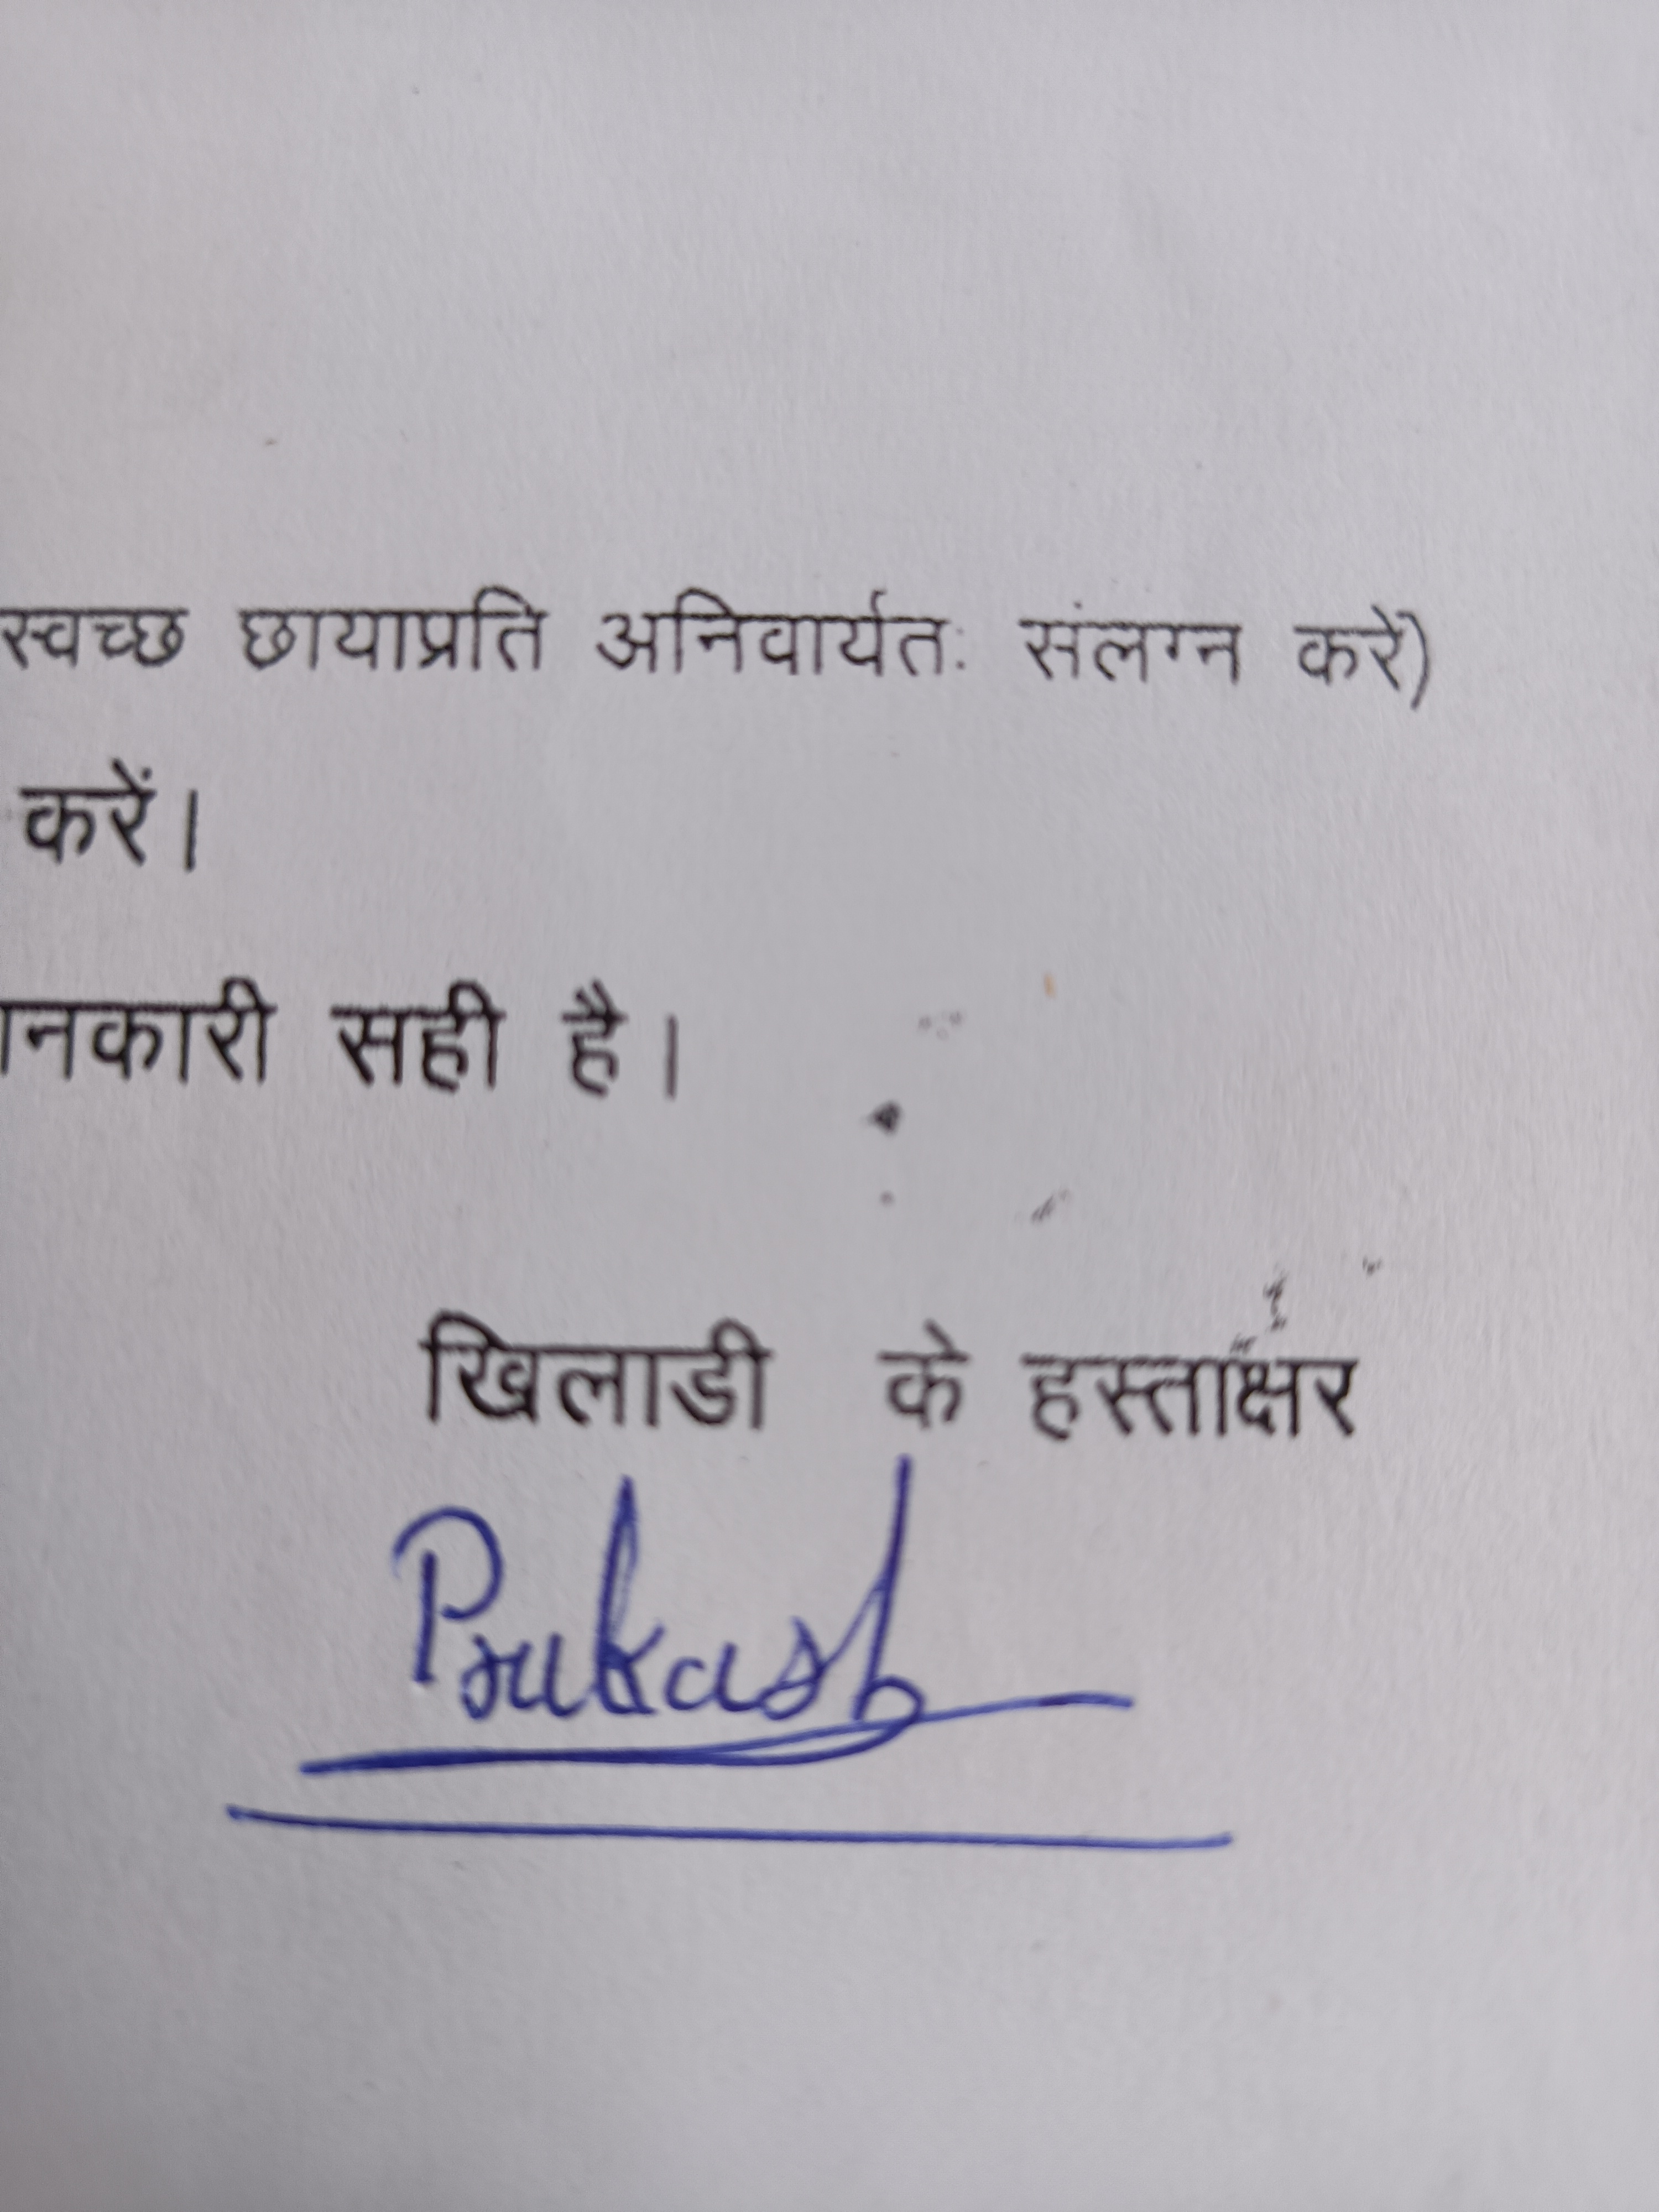 स्वच्छ छायाप्रति अनिवार्यतः संलग्न करें)
करें।
नकारी सही है।
खिलाडी के हस्ताक्षर
Prakash